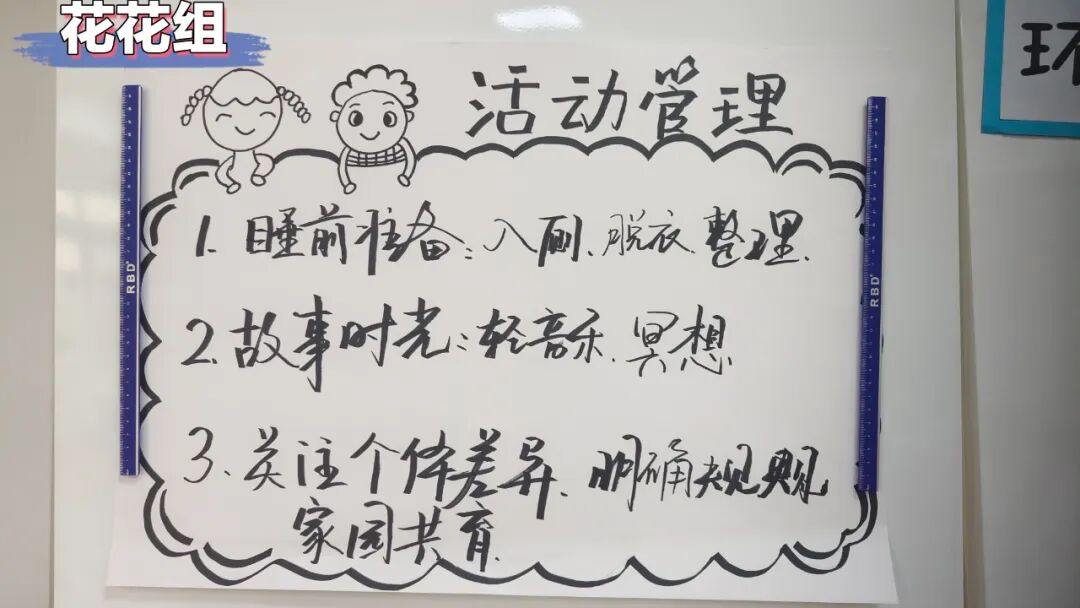 花花组
环
活动管理
1. 睡前准备：入厕、脱衣、整理.
2. 故事时光：轻音乐、冥想
3. 关注个体差异、明确规则
家园共育.
RBD
RBD